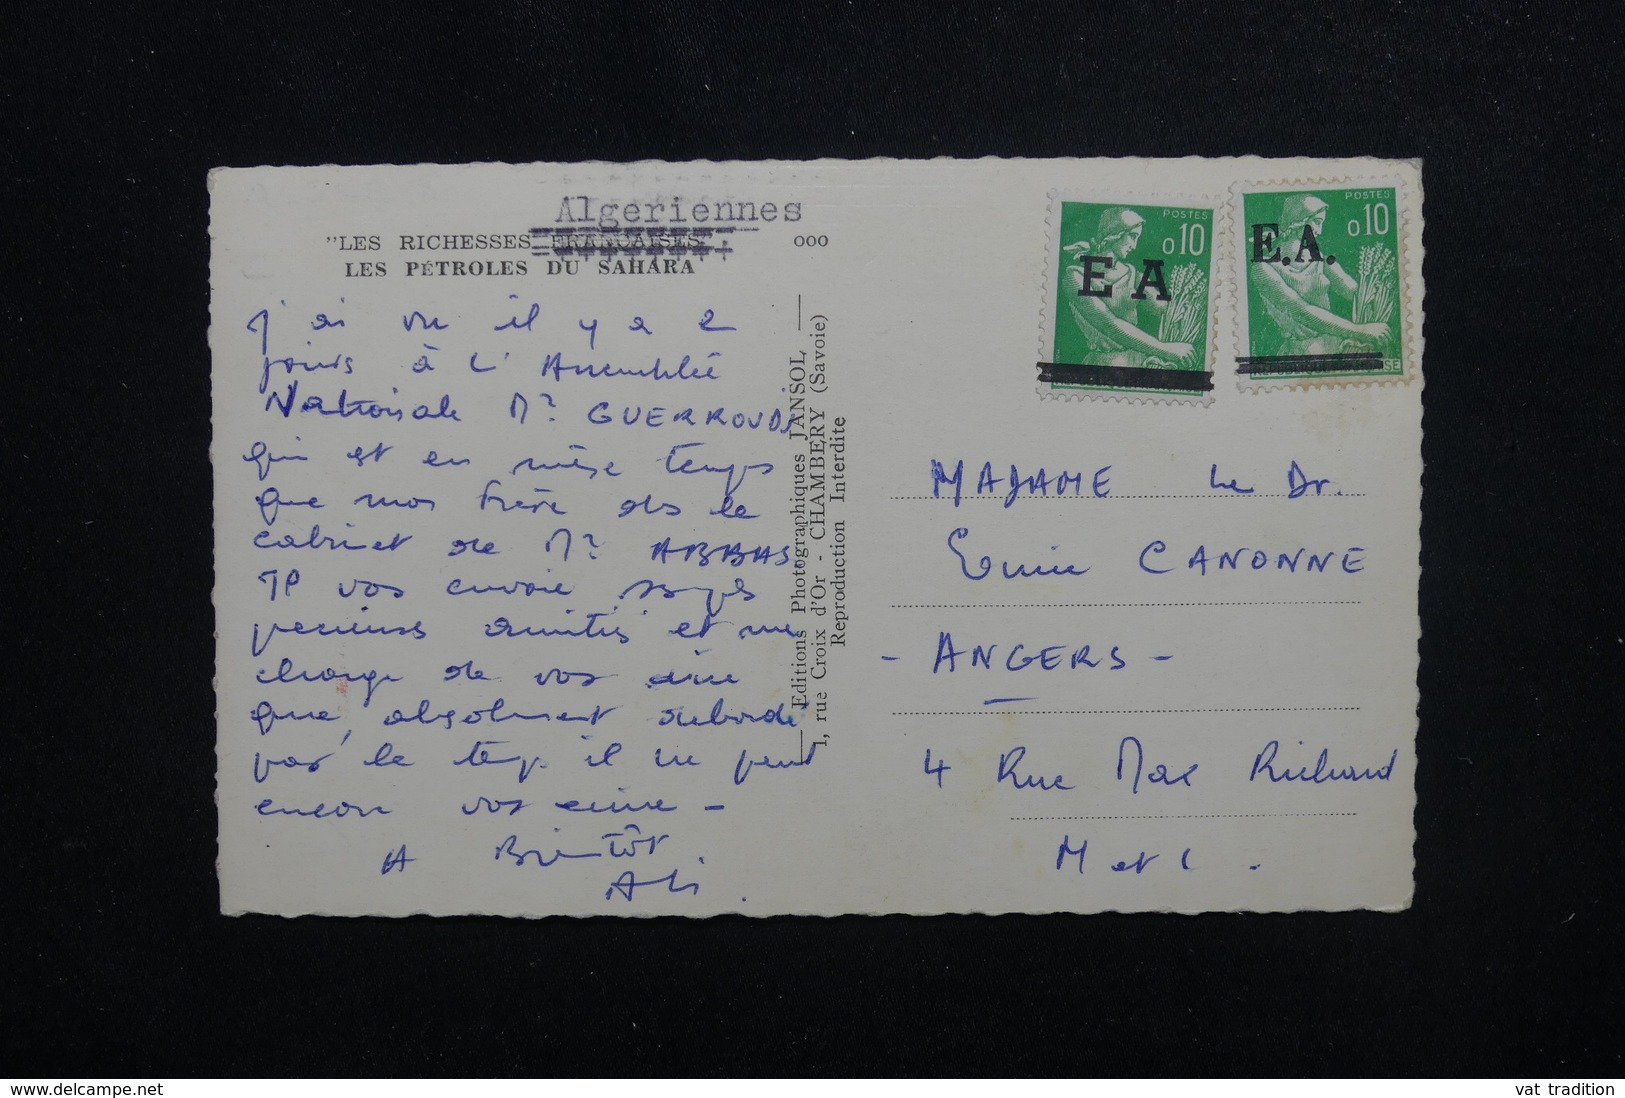 Algeriennes
"LES RICHESSES FRANÇAISES" 000
LES PÉTROLES DU SAHARA
J'ai vu il y a 2
jours à l'Assemblée
Nationale Mr GUERROUDJ
qui est en même temps
que mon frère ds le
cabinet de Mr ABBAS
JP vos envoie ses
précieuses amitiés et me
charge de vos dire
que, absolument débordé
par le temps il ne peut
encore vos écrire -
A Bientôt
Ali.
Editions Photographiques JANSOL
1, rue Croix d'Or - CHAMBERY (Savoie)
Reproduction Interdite
POSTES
0,10
E A
POSTES
0,10
E.A.
MADAME Le Dr.
CANONNE
- ANGERS -
4 Rue Max Richard
M et L.
www.delcampe.net
vat tradition